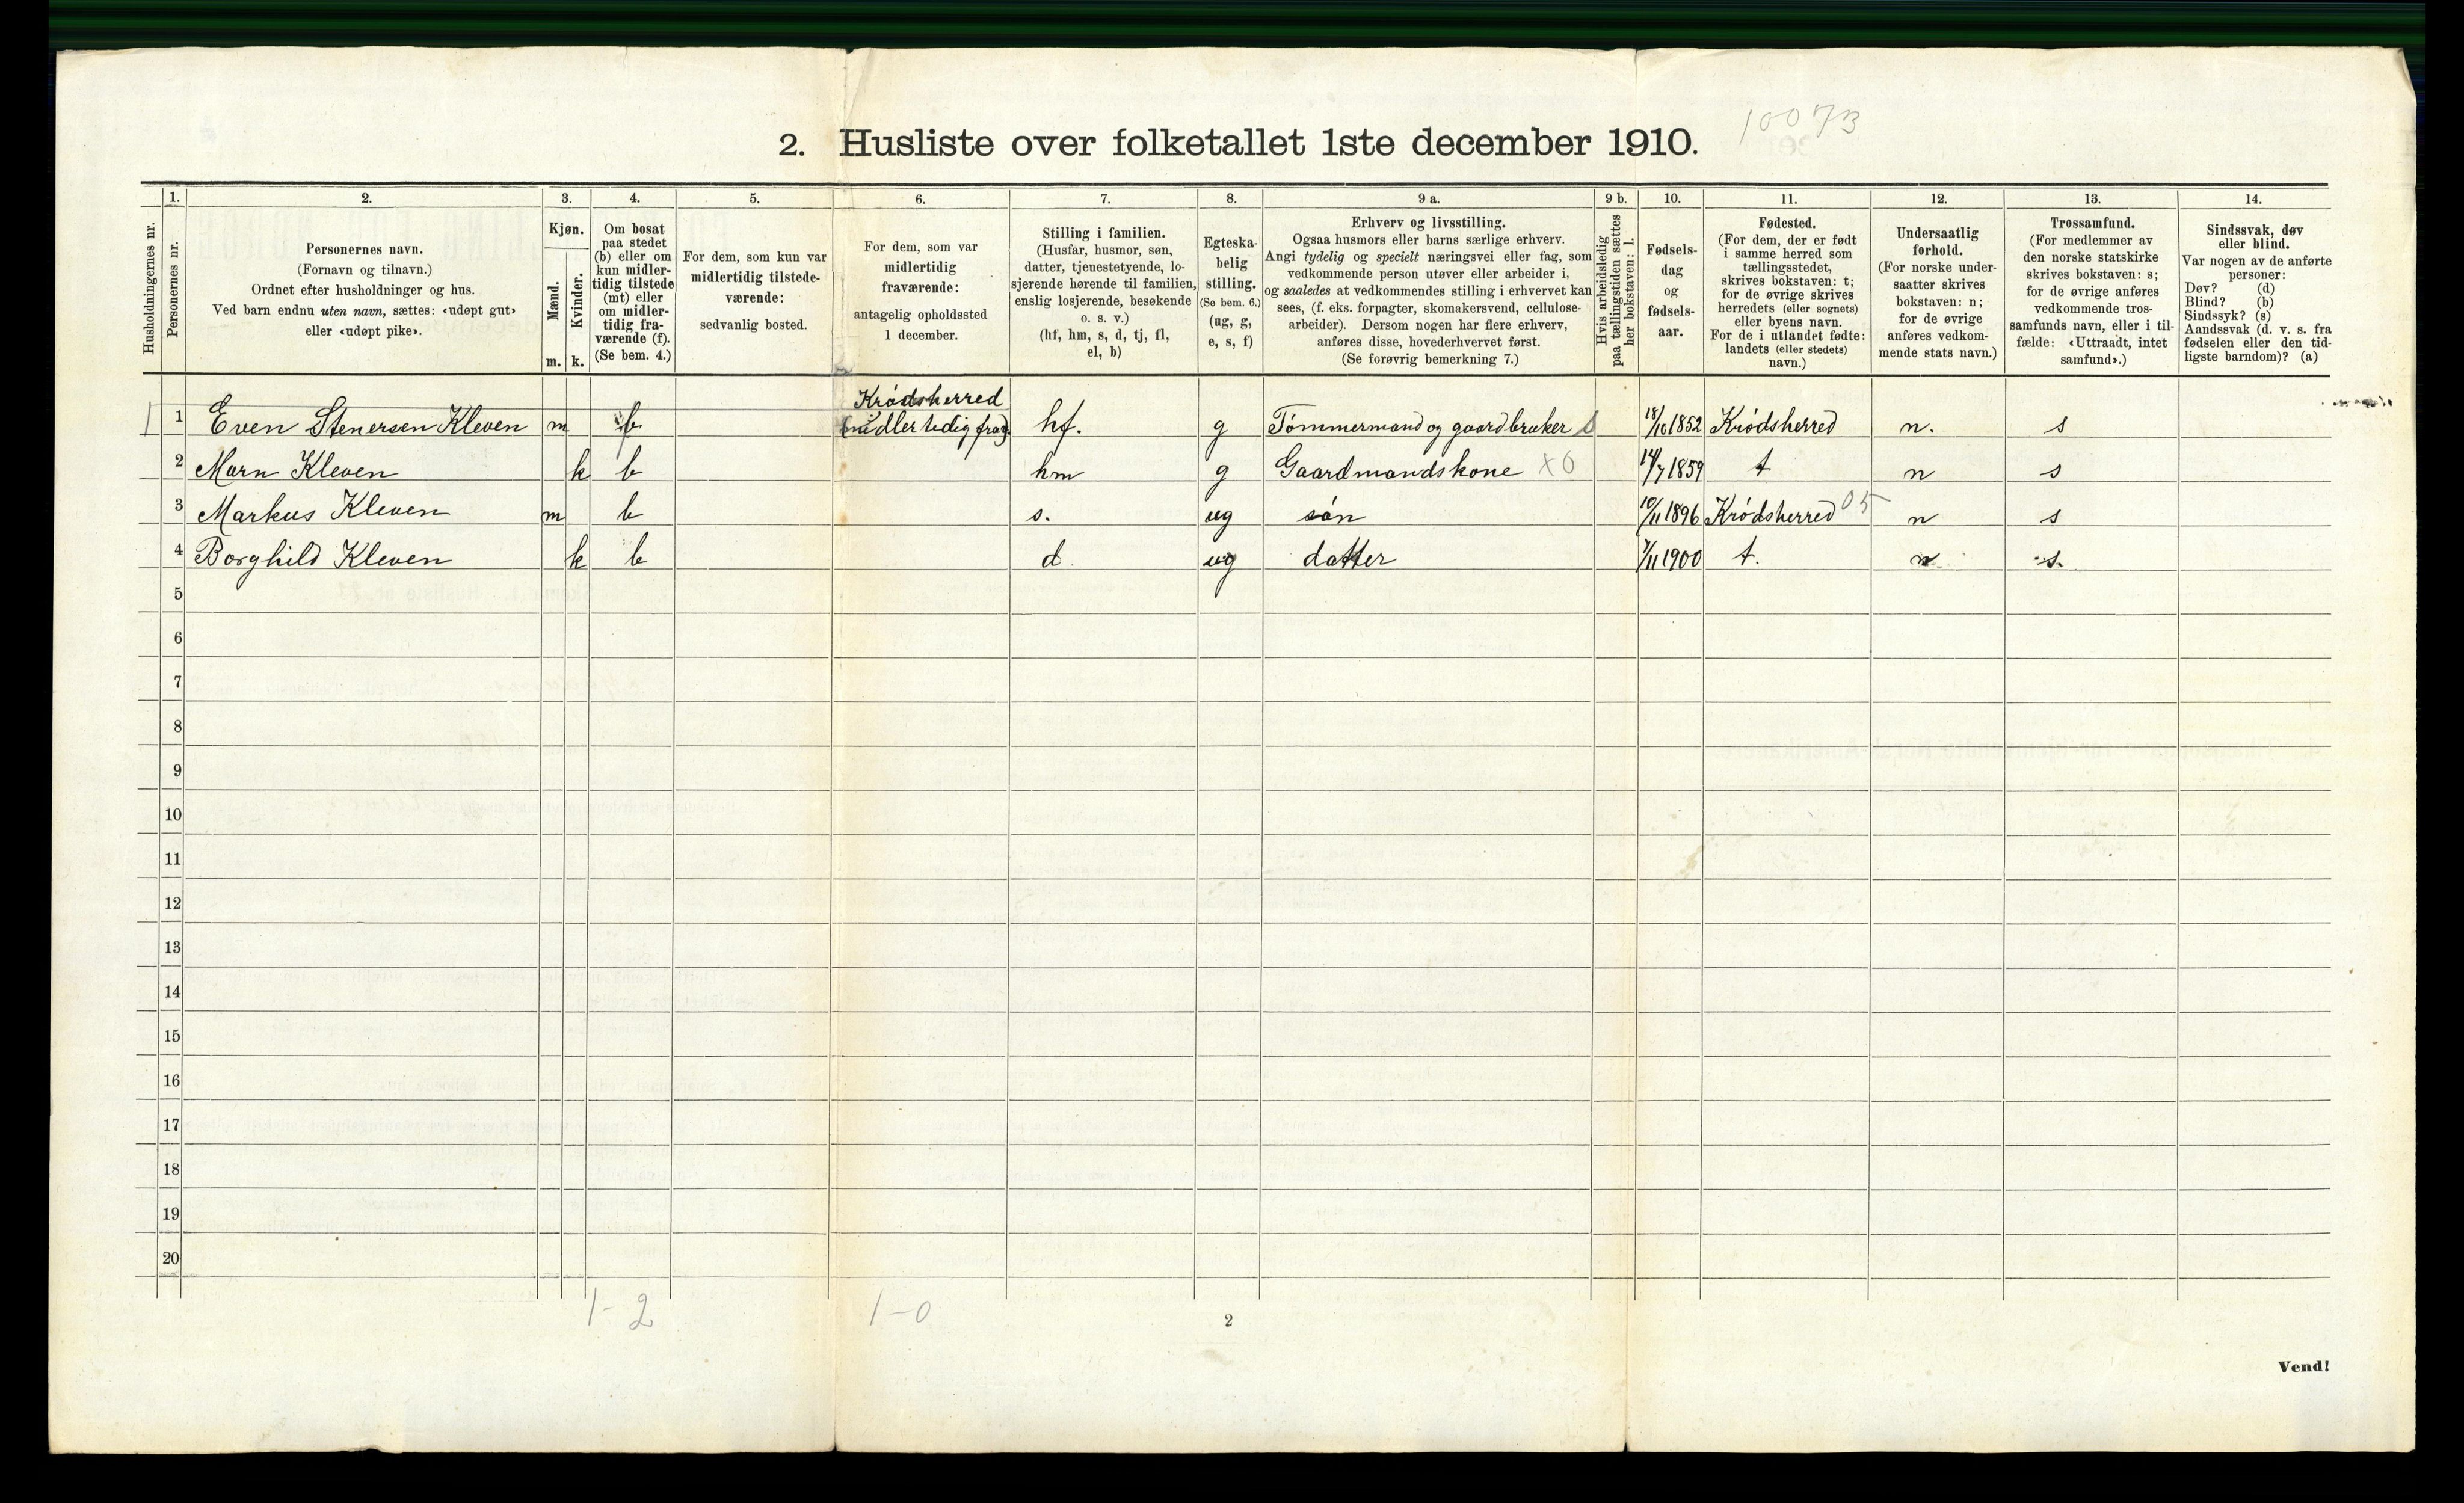 10073
2. Husliste over folketallet 1ste december 1910.
Husholdningernes nr.
1.
Personernes nr.
2.
Personernes navn.
(Fornavn og tilnavn.)
Ordnet efter husholdninger og hus.
Ved barn endnu uten navn, sættes: «udøpt gut»
eller «udøpt pike».
3.
Kjøn.
Mænd.
Kvinder.
m. k.
4.
Om bosat
paa stedet
(b) eller om
kun midler-
tidig tilstede
(mt) eller
om midler-
tidig fra-
værende (f).
(Se bem. 4.)
5.
For dem, som kun var
midlertidig tilstede-
værende:
sedvanlig bosted.
6.
For dem, som var
midlertidig
fraværende:
antagelig opholdssted
1 december.
7.
Stilling i familien.
(Husfar, husmor, søn,
datter, tjenestetyende, lo-
sjerende hørende til familien,
enslig losjerende, besøkende
o. s. v.)
(hf, hm, s, d, tj, fl,
el, b)
8.
Egteska-
belig
stilling.
(Se bem. 6.)
(ug, g,
e, s, f)
9 a.
Erhverv og livsstilling.
Ogsaa husmors eller barns særlige erhverv.
Angi tydelig og specielt næringsvei eller fag, som
vedkommende person utøver eller arbeider i,
og saaledes at vedkommendes stilling i erhvervet kan
sees, (f. eks. forpagter, skomakersvend, cellulose-
arbeider). Dersom nogen har flere erhverv,
anføres disse, hovederhvervet først.
(Se forøvrig bemerkning 7.)
9 b.
Hvis arbeidsledig
paa tællingstiden sættes
her bokstaven: l.
10.
Fødsels-
dag
og
fødsels-
aar.
11.
Fødested.
(For dem, der er født
i samme herred som
tællingsstedet,
skrives bokstaven: t;
for de øvrige skrives
herredets (eller sognets)
eller byens navn.
For de i utlandet fødte:
landets (eller stedets)
navn.)
12.
Undersaatlig
forhold.
(For norske under-
saatter skrives
bokstaven: n;
for de øvrige
anføres vedkom-
mende stats navn.)
13.
Trossamfund.
(For medlemmer av
den norske statskirke
skrives bokstaven: s;
for de øvrige anføres
vedkommende tros-
samfunds navn, eller i til-
fælde: «Uttraadt, intet
samfund».)
14.
Sindssvak, døv
eller blind.
Var nogen av de anførte
personer:
Døv? (d)
Blind? (b)
Sindssyk? (s)
Aandssvak (d. v. s. fra
fødselen eller den tid-
ligste barndom)? (a)
Krødsherred
1 Even Stenersen Kleven m (midlertidig frav) hf. g Tømmermand og gaardbruker 18/10 1852 Krødsherred n. s
2 Marn Kleven k b hm g Gaardmandskone x0 14/7 1859 t n s
3 Markus Kleven m b s. ug søn 10/11 1896 Krødsherred 05 n s
4 Borghild Kleven k b d ug datter 7/11 1900 t. n s.
5
6
7
8
9
10
11
12
13
14
15
16
17
18
19
20
1-2 1-0
2
Vend!